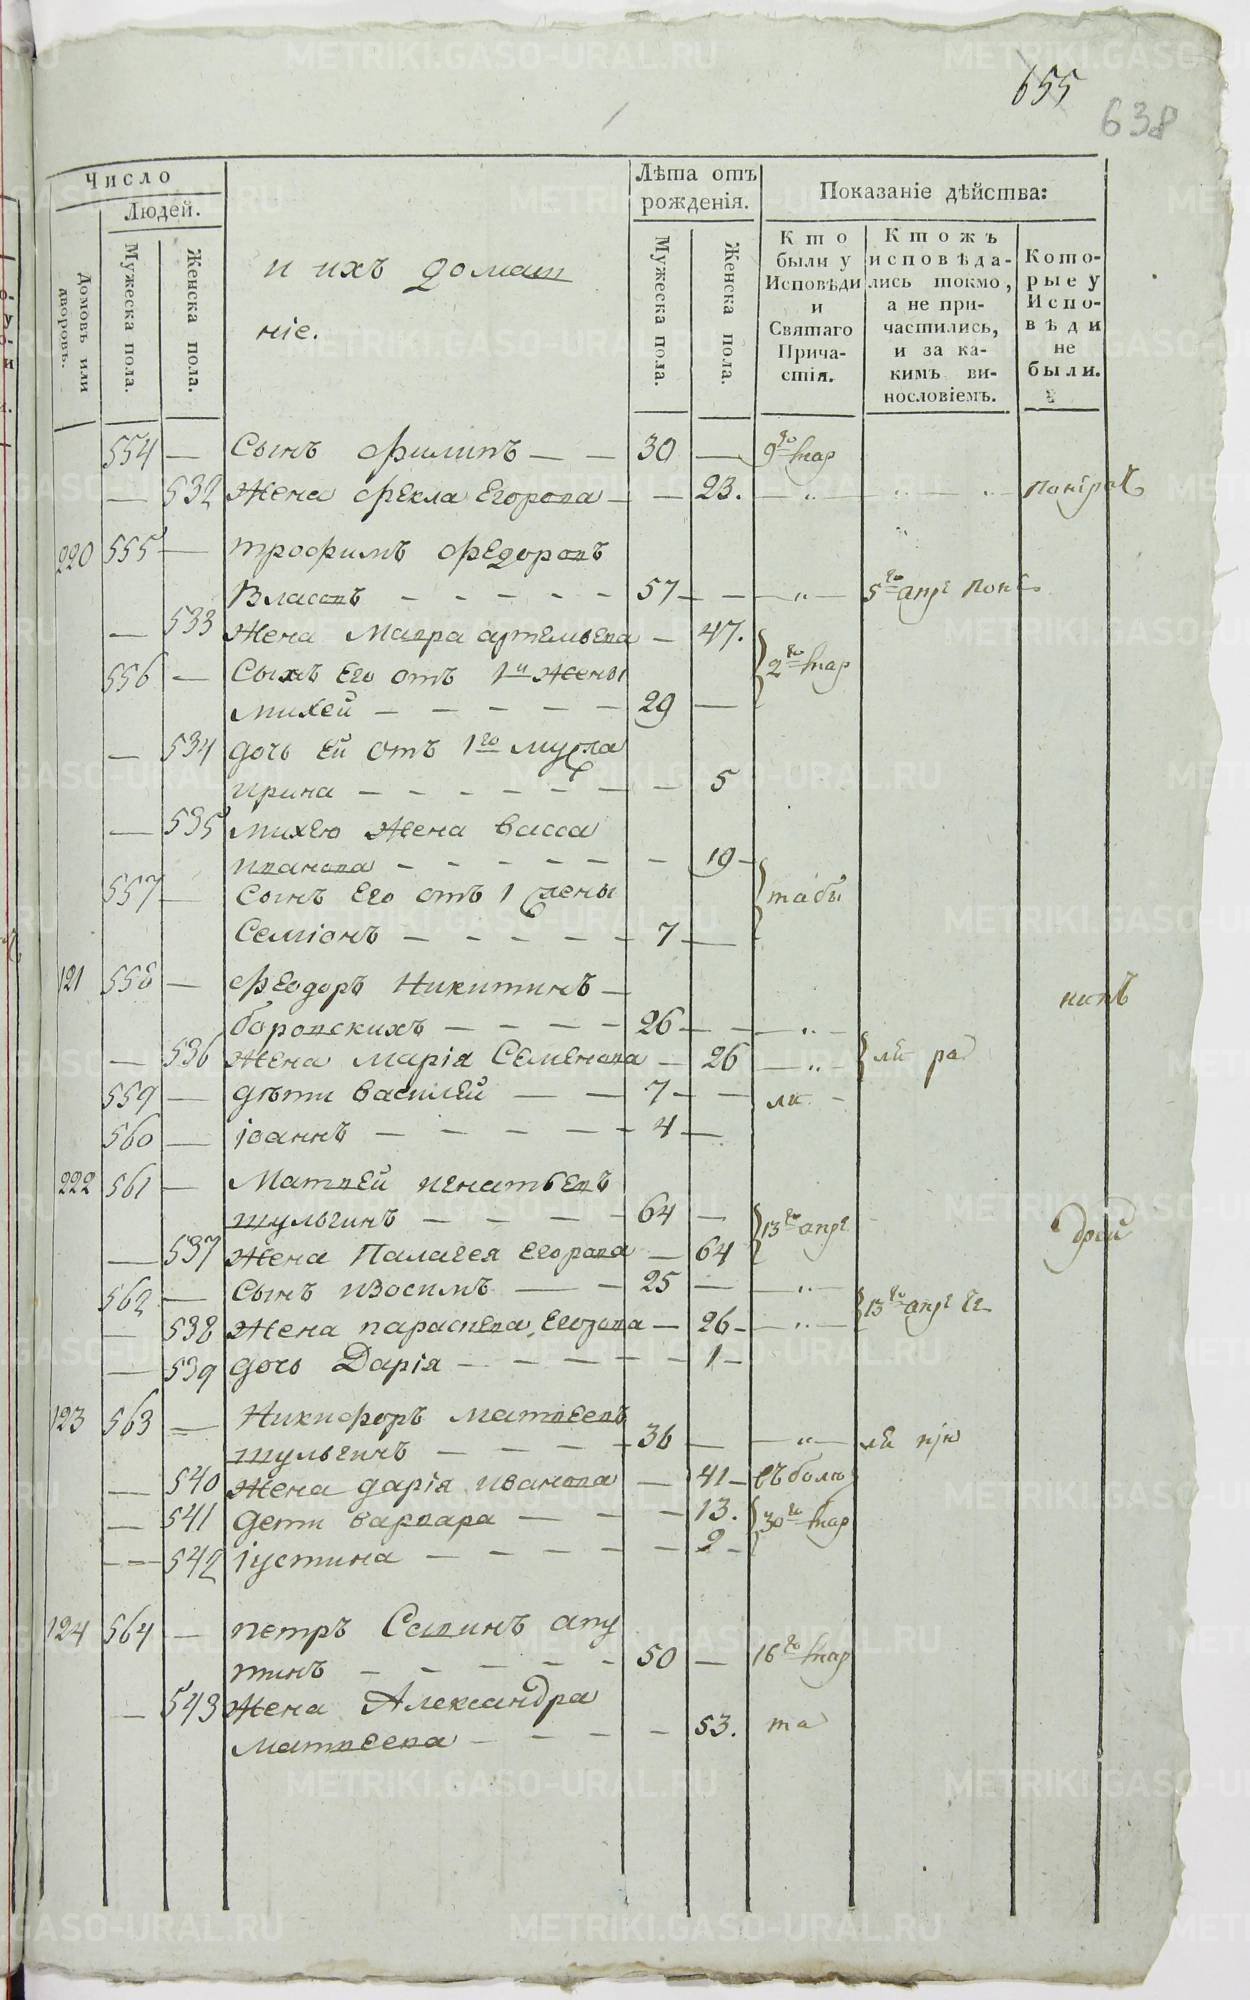 655
638
Число
Людей.
Домовъ или дворовъ.
Мужеска пола.
Женска пола.
и ихъ домаш
ніе.
Лѣта отъ рожденія.
Мужеска пола.
Женска пола.
Показаніе дѣйства:
Кто были у Исповѣди и Святаго Причастія.
Ктожъ исповѣдались токмо, а не причастились, и за какимъ винословіемъ.
Которые у Исповѣди не были.
554 — Сынъ Филипъ — — 30 — 9го мар
— 532 Жена Фекла Егорова — — 23. — " — " — "
220 555 — Трофимъ Федоровъ
Власовъ — — — — — 57 — — — " — 5го апр
— 533 Жена Мавра Артемьева — 47.
556 — Сынъ Его отъ 1й жены 2го мар
Михей — — — — — 29 —
— 534 дочь Ей отъ 1го мужа
Ирина — — — — — — — 5
— 535 Михею Жена Васса
Иванова — — — — — — 19 —
557 — Сынъ Его отъ 1 жены
Семіонъ — — — — — 7 —
121 558 — Феодоръ Никитинъ —
Боровскихъ — — — — 26 — — — " —
— 536 Жена Марія Семенова — 26 — " —
559 — дѣти Василей — — 7 — —
560 — Іоаннъ — — — — — 4 —
222 561 — Матвей Игнатьевъ
Шульгинъ — — — — 64 — 13го апр
— 537 Жена Палагея Егорова — 64
562 — Сынъ Изосимъ — — 25 — — " —
— 538 Жена Параскева Егорова — 26 — — " — 13го апр
— 539 дочь Дарія — — — — — 1 —
123 563 — Никифоръ Матвеевъ
Шульгинъ — — — — 36 — — " —
— 540 Жена дарія Иванова — 41 —
— 541 дети Варвара — — — 13. 30го мар
— — 542 Іустина — — — — — 2 —
124 564 — Петръ Савинъ Апу
тинъ — — — — — 50 — 16го мар
— 543 Жена Александра
Матвеева — — — — 53.
METRIKI.GASO-URAL.RU